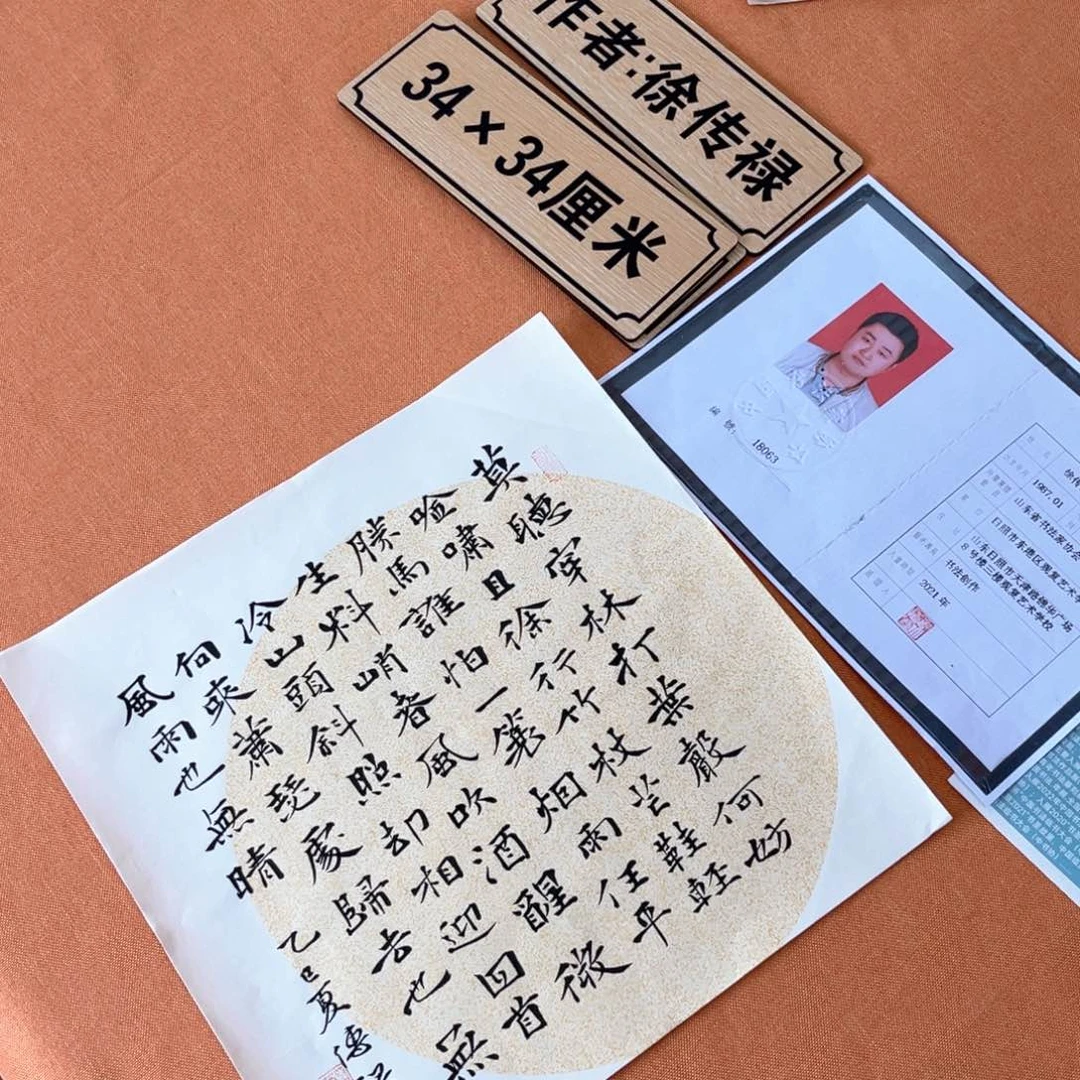 作者:徐传禄
34×34厘米
莫聽穿林打葉聲何妨
吟嘯且徐行竹杖芒鞋輕
勝馬誰怕一蓑烟雨任平
生料峭春風吹酒醒微
冷山頭斜照却相迎回首
向來蕭瑟處歸去也無
風雨也無晴
乙巳夏傳
编号: 18063
徐传
1987.01
山东省书法家协会
日照市东港区观复艺术学
山东日照市天津路德广场
8号楼三楼观复艺术学校
书法创作
2021年